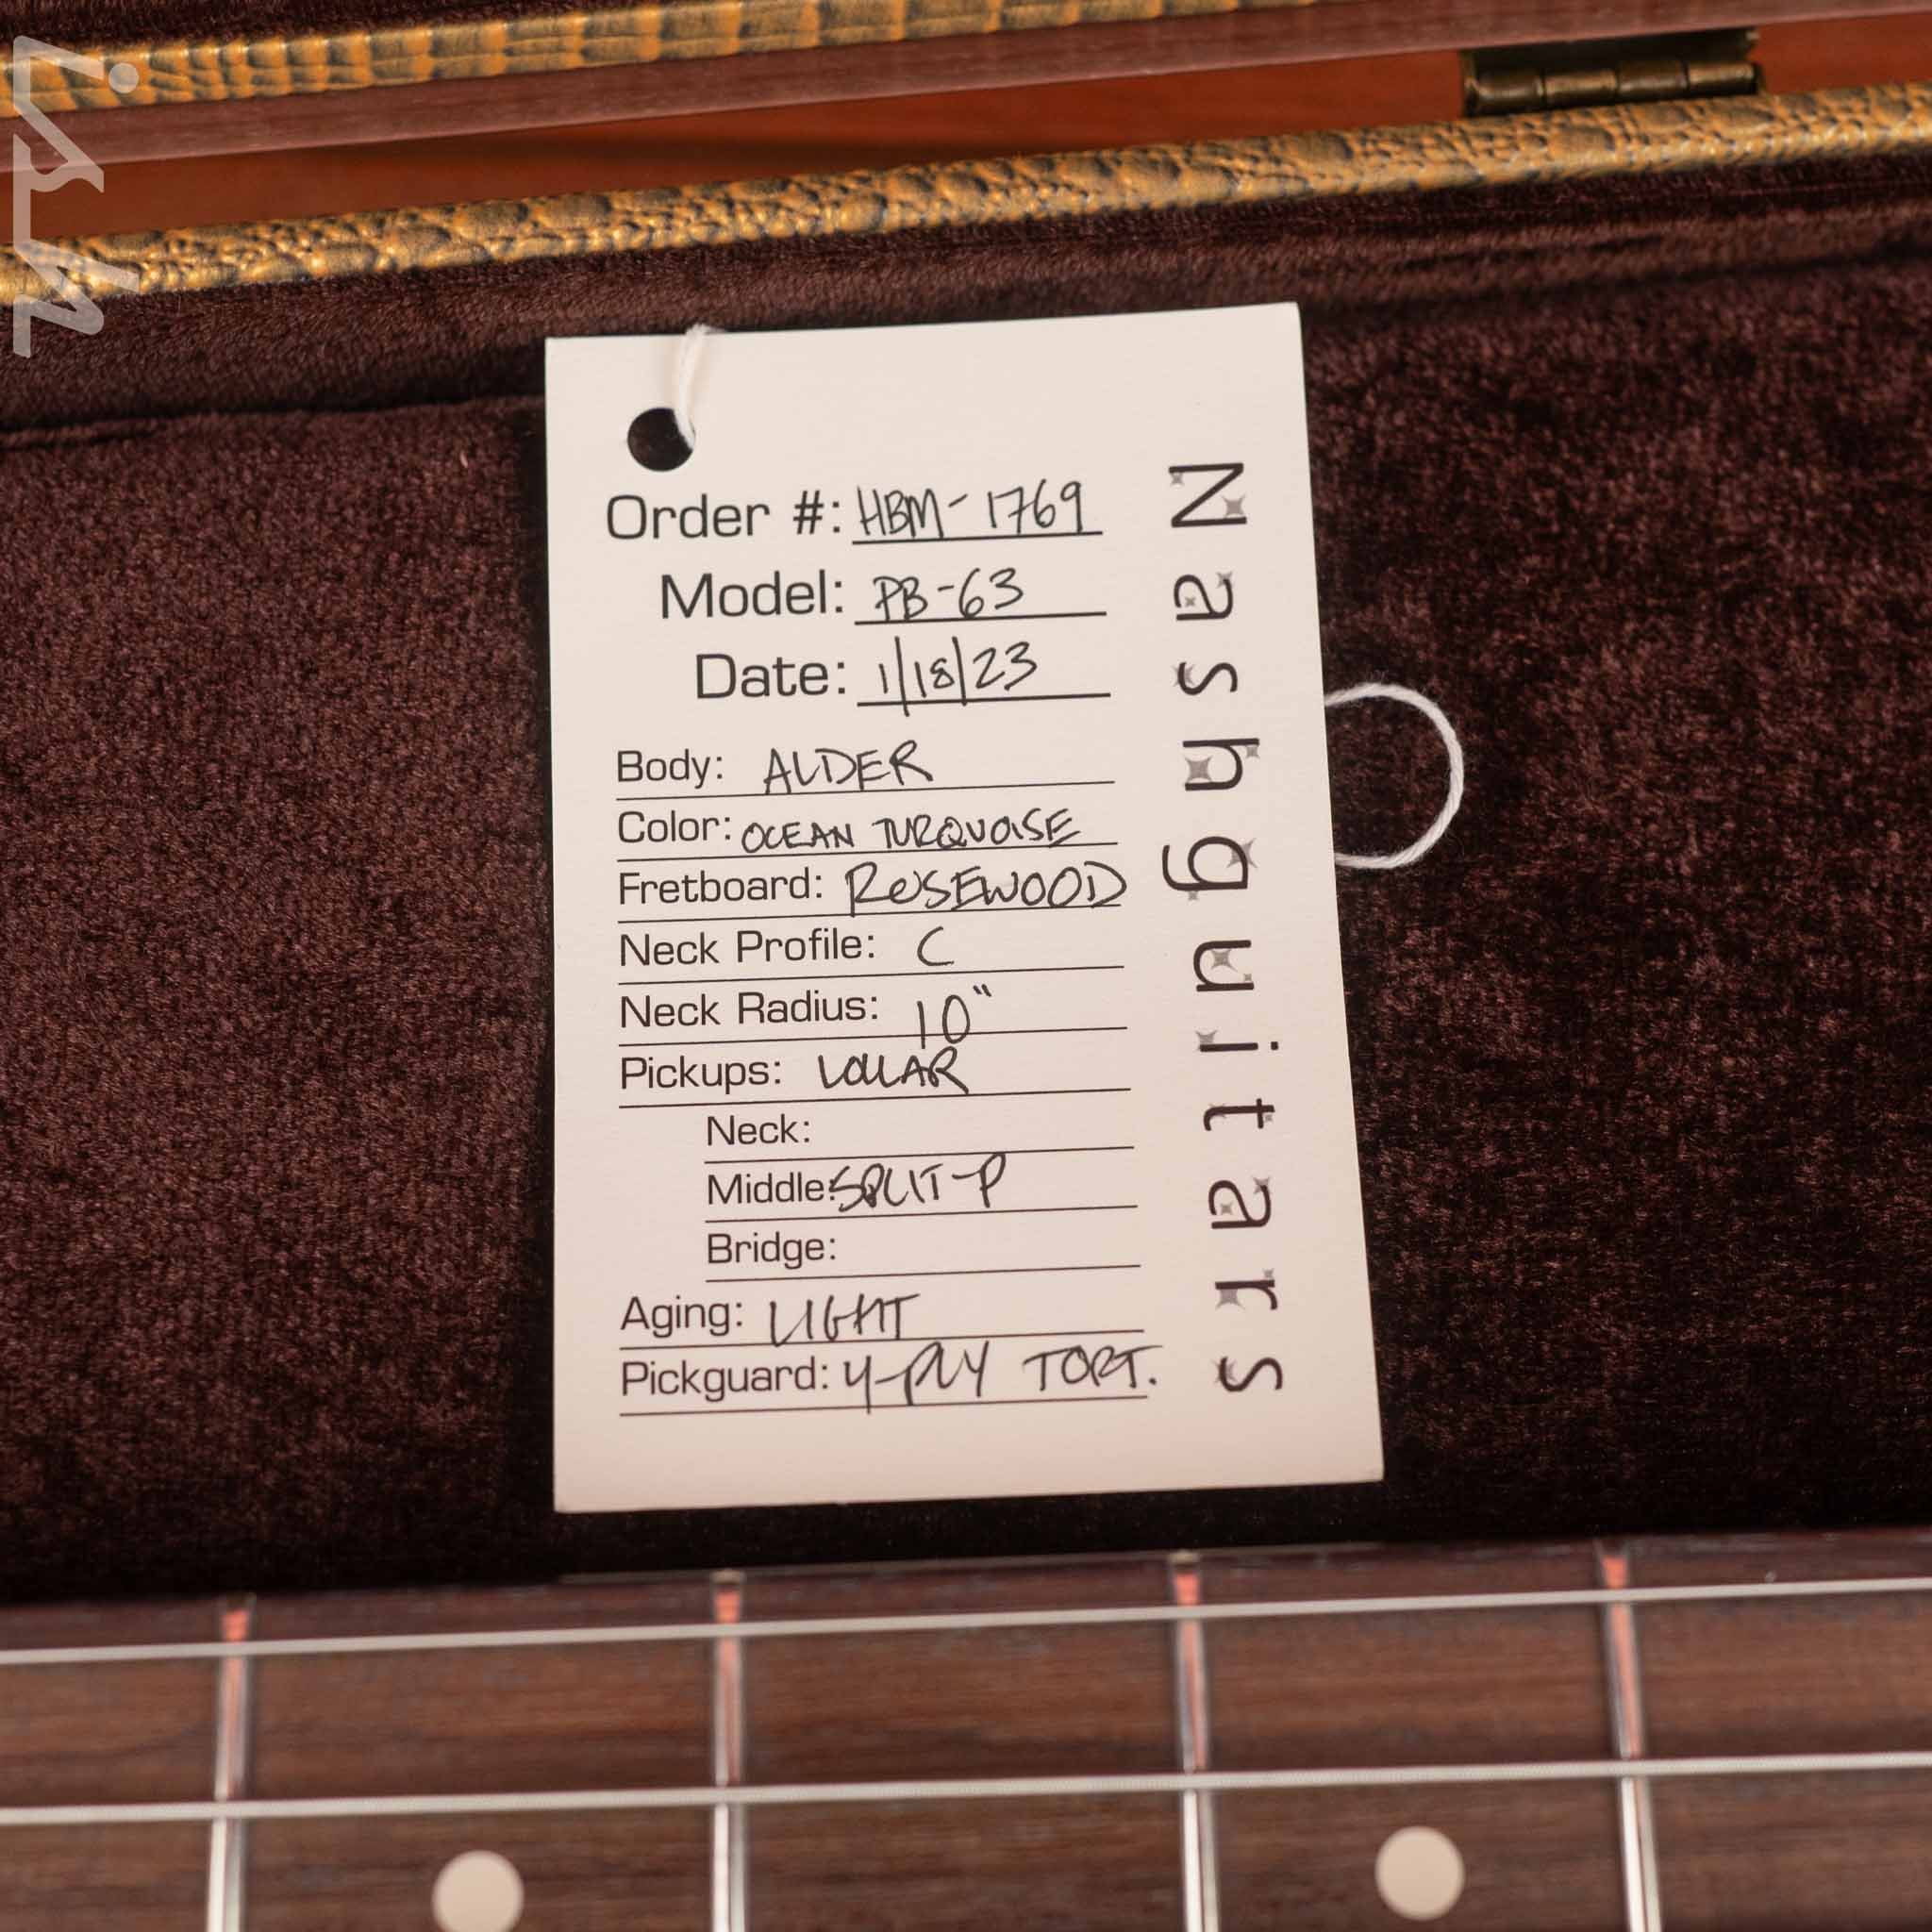 isn
Order #: HBM-1769
Model: PB-63
Date: 1/18/23
Body: ALDER
Color: OCEAN TURQUOISE
Fretboard: ROSEWOOD
Neck Profile: C
Neck Radius: 10"
Pickups: LOLLAR
Neck:
Middle: SPLIT-P
Bridge:
Aging: LIGHT
Pickguard: 4-PLY TORT.
Nashguitars